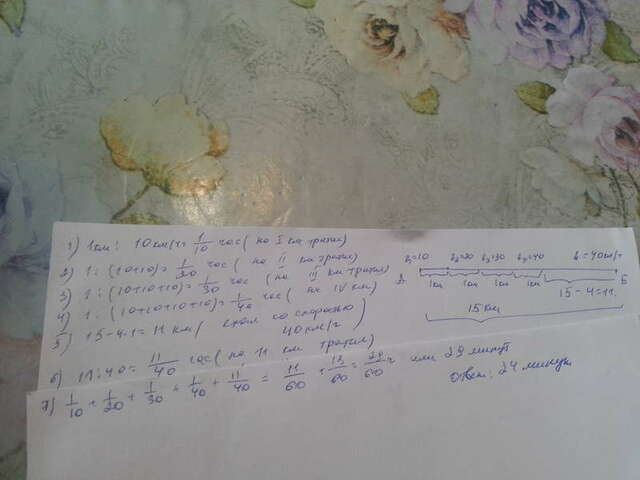 1) 1км : 10 км/ч = 1/10 час (на I км тратил)
2) 1 : (10+10) = 1/20 час (на II км тратил)
3) 1 : (10+10+10) = 1/30 час (на III км тратил)
4) 1 : (10+10+10+10) = 1/40 час (на IV км)
5) 15-4·1 = 11 км ( со скоростью 40 км/ч)
6) 11 : 40 = 11/40 час (на 11 км тратил)
7) 1/10 + 1/20 + 1/30 + 1/40 + 11/40 = 11/60 + 18/60 = 29/60 ч или 29 минут
Ответ: 24 минуты
=10 =20 =30 =40 =40км/ч
А Б
1км 1км 1км 1км 15-4=11
15км